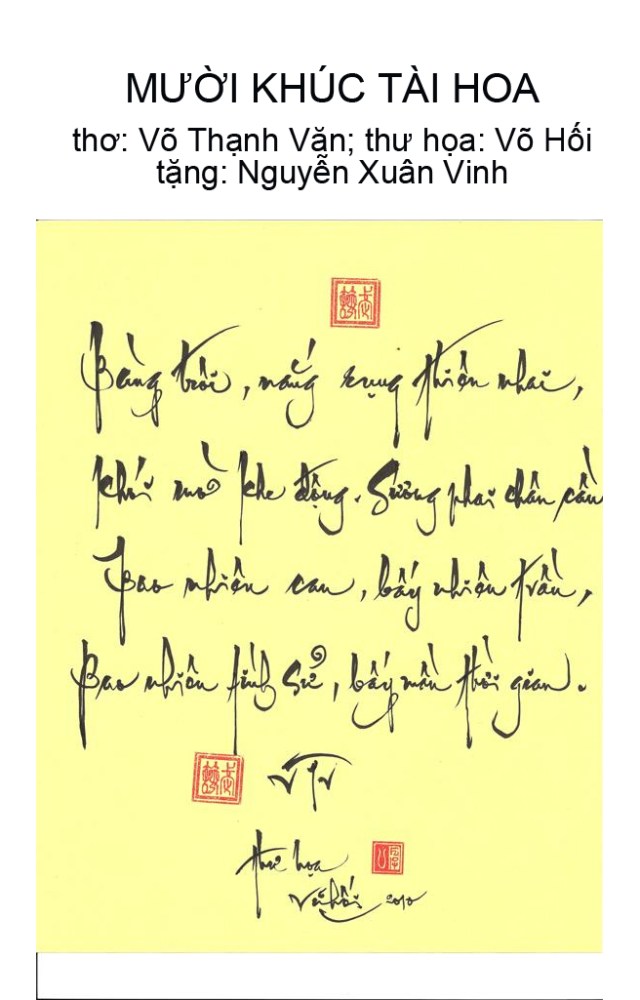 MƯỜI KHÚC TÀI HOA
thơ: Võ Thạnh Văn; thư họa: Võ Hối
tặng: Nguyễn Xuân Vinh
Bàng trôi, nắng rụng thiên nhai,
khói mờ khe động. Sương phai chân cầu
Bao nhiêu cau, bấy nhiêu trầu,
Bao nhiêu tình sử, bấy mầu thời gian.
VTV
thư họa
Võ Hối 2010